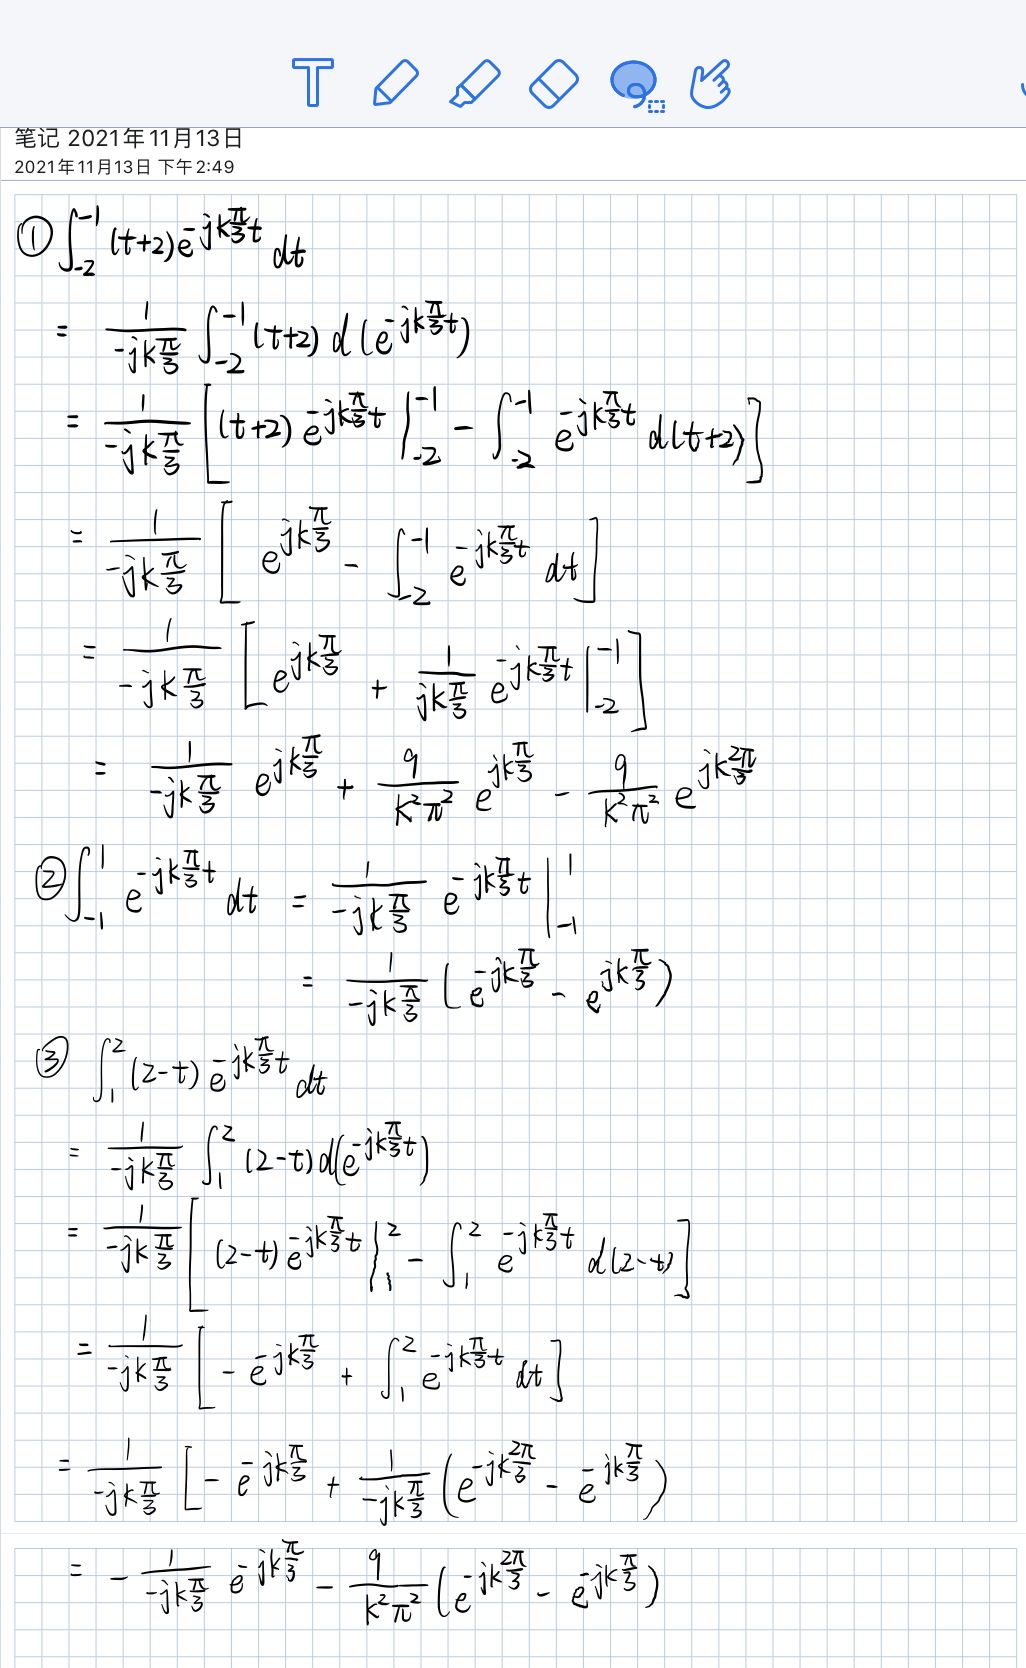 T
笔记 2021年11月13日
2021年11月13日 下午2:49
① ∫_{-2}^{-1} (t+2) e^{-jk\frac{π}{3}t} dt
= \frac{1}{-jk\frac{π}{3}} ∫_{-2}^{-1} (t+2) d(e^{-jk\frac{π}{3}t})
= \frac{1}{-jk\frac{π}{3}} [(t+2) e^{-jk\frac{π}{3}t} |_{-2}^{-1} - ∫_{-2}^{-1} e^{-jk\frac{π}{3}t} d(t+2)]
= \frac{1}{-jk\frac{π}{3}} [e^{jk\frac{π}{3}} - ∫_{-2}^{-1} e^{-jk\frac{π}{3}t} dt]
= \frac{1}{-jk\frac{π}{3}} [e^{jk\frac{π}{3}} + \frac{1}{jk\frac{π}{3}} e^{-jk\frac{π}{3}t} |_{-2}^{-1}]
= \frac{1}{-jk\frac{π}{3}} e^{jk\frac{π}{3}} + \frac{9}{k^2π^2} e^{jk\frac{π}{3}} - \frac{9}{k^2π^2} e^{jk\frac{2π}{3}}
② ∫_{-1}^{1} e^{-jk\frac{π}{3}t} dt = \frac{1}{-jk\frac{π}{3}} e^{-jk\frac{π}{3}t} |_{-1}^{1}
= \frac{1}{-jk\frac{π}{3}} (e^{-jk\frac{π}{3}} - e^{jk\frac{π}{3}})
③ ∫_{1}^{2} (2-t) e^{-jk\frac{π}{3}t} dt
= \frac{1}{-jk\frac{π}{3}} ∫_{1}^{2} (2-t) d(e^{-jk\frac{π}{3}t})
= \frac{1}{-jk\frac{π}{3}} [(2-t) e^{-jk\frac{π}{3}t} |_{1}^{2} - ∫_{1}^{2} e^{-jk\frac{π}{3}t} d(2-t)]
= \frac{1}{-jk\frac{π}{3}} [-e^{-jk\frac{π}{3}} + ∫_{1}^{2} e^{-jk\frac{π}{3}t} dt]
= \frac{1}{-jk\frac{π}{3}} [-e^{-jk\frac{π}{3}} + \frac{1}{-jk\frac{π}{3}} (e^{-jk\frac{2π}{3}} - e^{-jk\frac{π}{3}})
= -\frac{1}{-jk\frac{π}{3}} e^{-jk\frac{π}{3}} - \frac{9}{k^2π^2} (e^{-jk\frac{2π}{3}} - e^{-jk\frac{π}{3}})